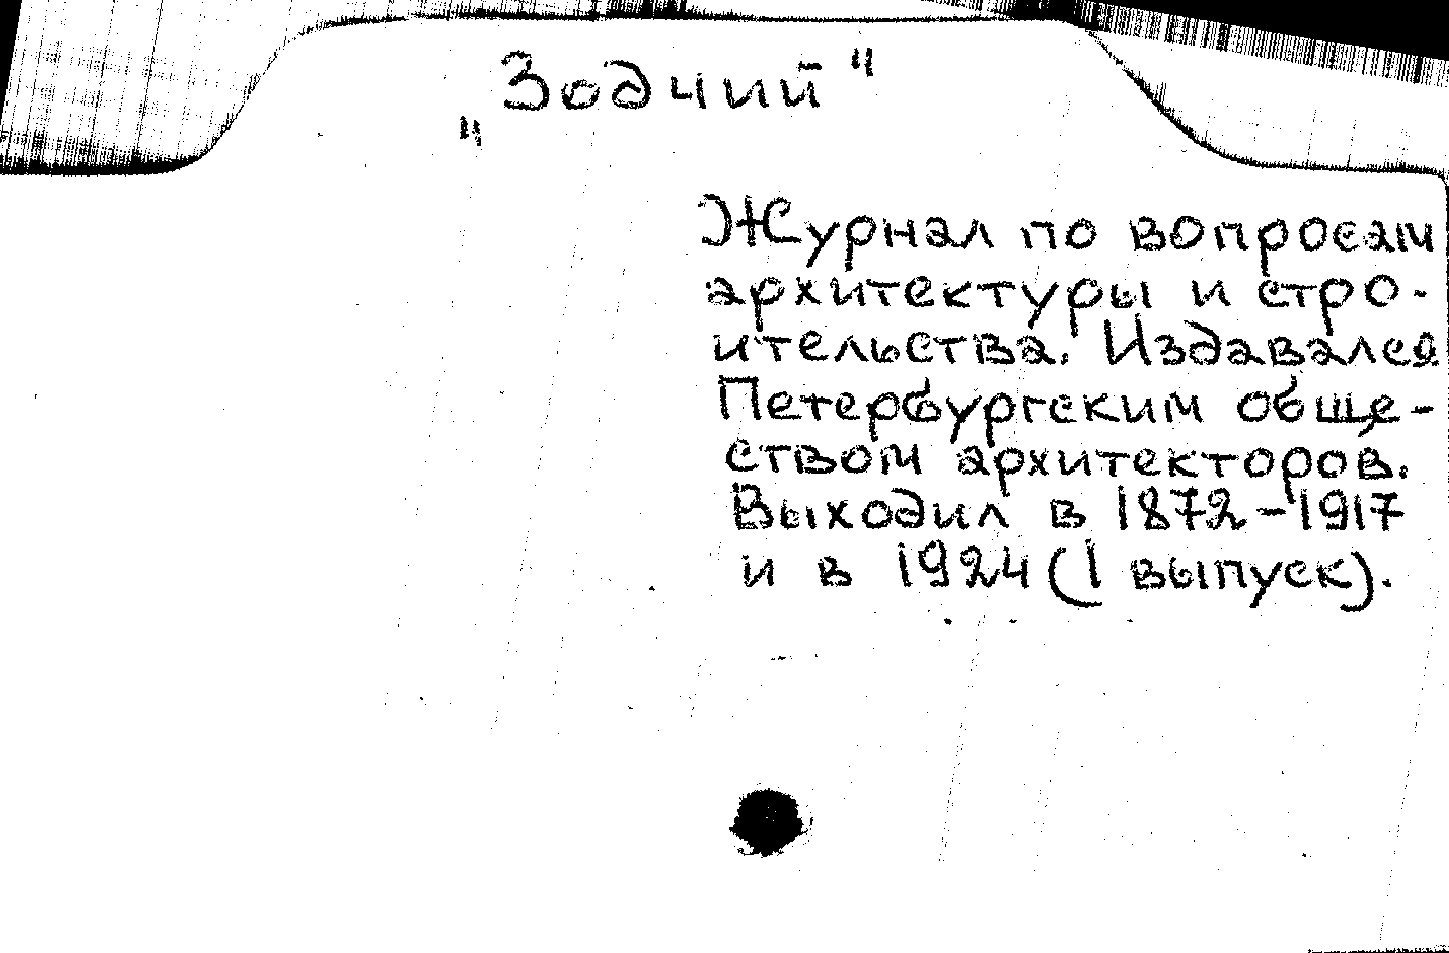 „Зодчий"
Журнал по вопросам
архитектуры и стро-
ительства. Издавался
Петербургским обще-
ством архитекторов.
Выходил в 1872-1917
и в 1924 (1 выпуск).